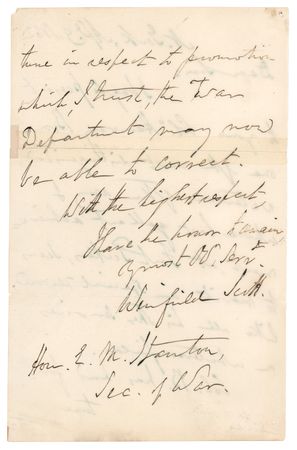 tune in respect to promotion
which, I trust, the War
Department may now
be able to correct.
With the highest respect,
I have the honor to remain
Yr most Ob. Servt.
Winfield Scott.
Hon. E. M. Stanton,
Sec. of War.